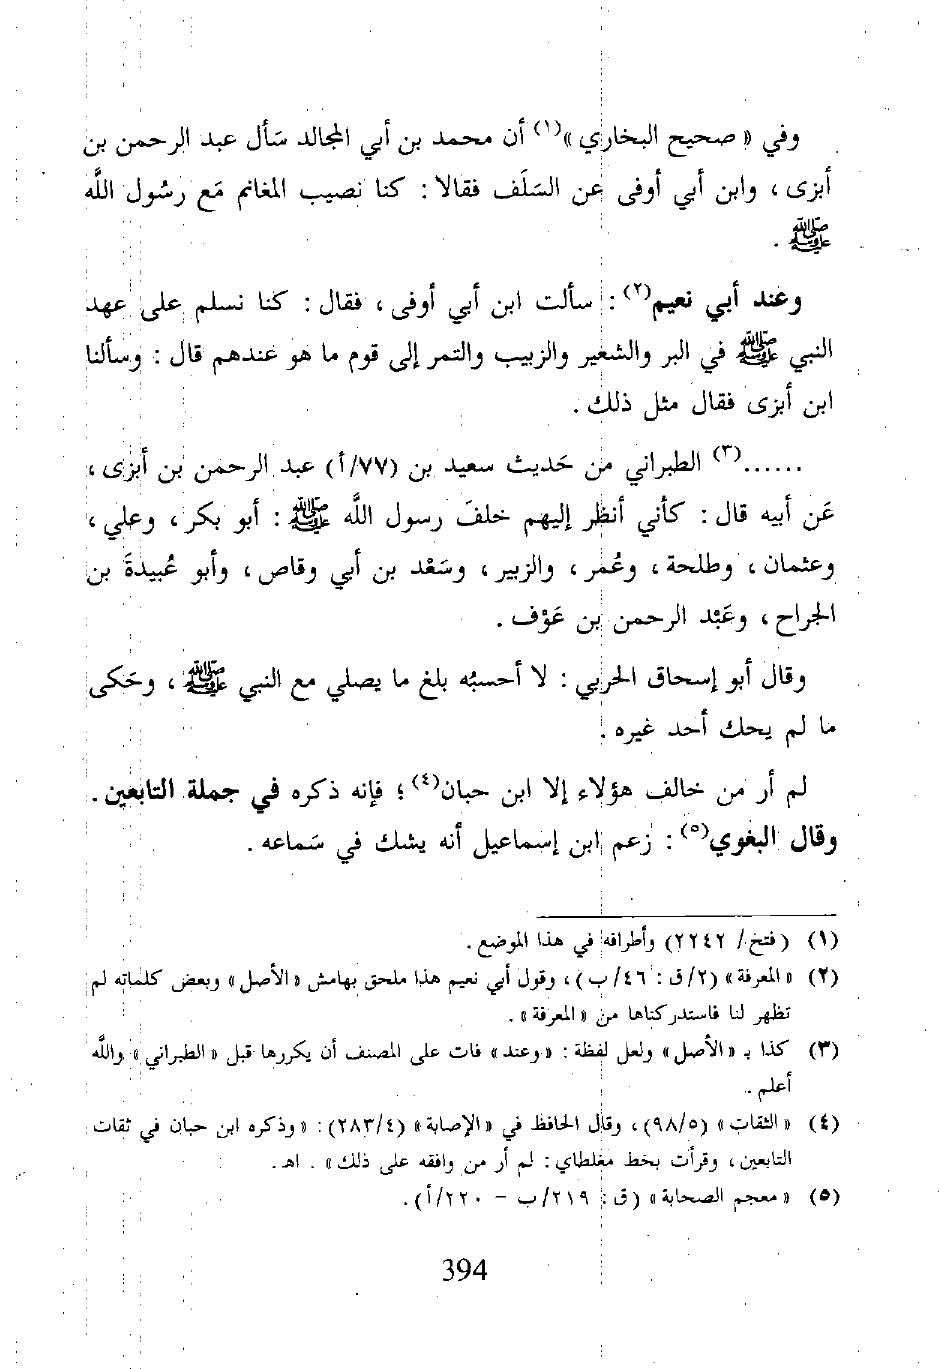 وفي « صحيح البخاري »(١) أن محمد بن أبي المجالد سَأل عبد الرحمن بن
أبزى ، وابن أبي أوفى عن السَلَف فقالا : كنا نصيب المغانم مَع رسُول اللَّه
ﷺ .
وعند أبي نعيم(٢) : سألت ابن أبي أوفى ، فقال : كنا نسلم على عهد
النبي ﷺ في البر والشعير والزبيب والتمر إلى قوم ما هو عندهم قال : وسألنا
ابن أبزى فقال مثل ذلك .
......(٣) الطبراني من حَديث سعيد بن (٧٧/أ) عبد الرحمن بن أبزى ،
عَن أبيه قال : كأني أنظر إليهم خلفَ رسول اللَّه ﷺ : أبو بكر ، وعلي ،
وعثمان ، وطلحة ، وعُمر ، والزبير ، وسَعْد بن أبي وقاص ، وأبو عُبيدةَ بن
الجراح ، وعَبْد الرحمن بن عَوْف .
وقال أبو إسحاق الحربي : لا أحسبُه بلغ ما يصلي مع النبي ﷺ ، وحَكى
ما لم يحك أحد غيره .
لم أر من خالف هؤلاء إلا ابن حبان(٤) ؛ فإنه ذكره في جملة التابعين .
وقال البغوي(٥) : زعم ابن إسماعيل أنه يشك في سَماعه .
(١) (فتح/ ٢٢٤٢) وأطرافه في هذا الموضع .
(٢) « المعرفة » (٢/ق : ٤٦/ب) ، وقول أبي نعيم هذا ملحق بهامش « الأصل » وبعض كلماته لم
تظهر لنا فاستدركناها من « المعرفة » .
(٣) كذا بـ « الأصل » ولعل لفظة : « وعند » فات على المصنف أن يكررها قبل « الطبراني » واللَّه
أعلم .
(٤) « الثقات » (٩٨/٥) ، وقال الحافظ في « الإصابة » (٢٨٣/٤) : « وذكره ابن حبان في ثقات
التابعين ، وقرأت بخط مغلطاي : لم أر من وافقه على ذلك » . اهـ .
(٥) « معجم الصحابة » (ق : ٢١٩/ب - ٢٢٠/أ) .
394